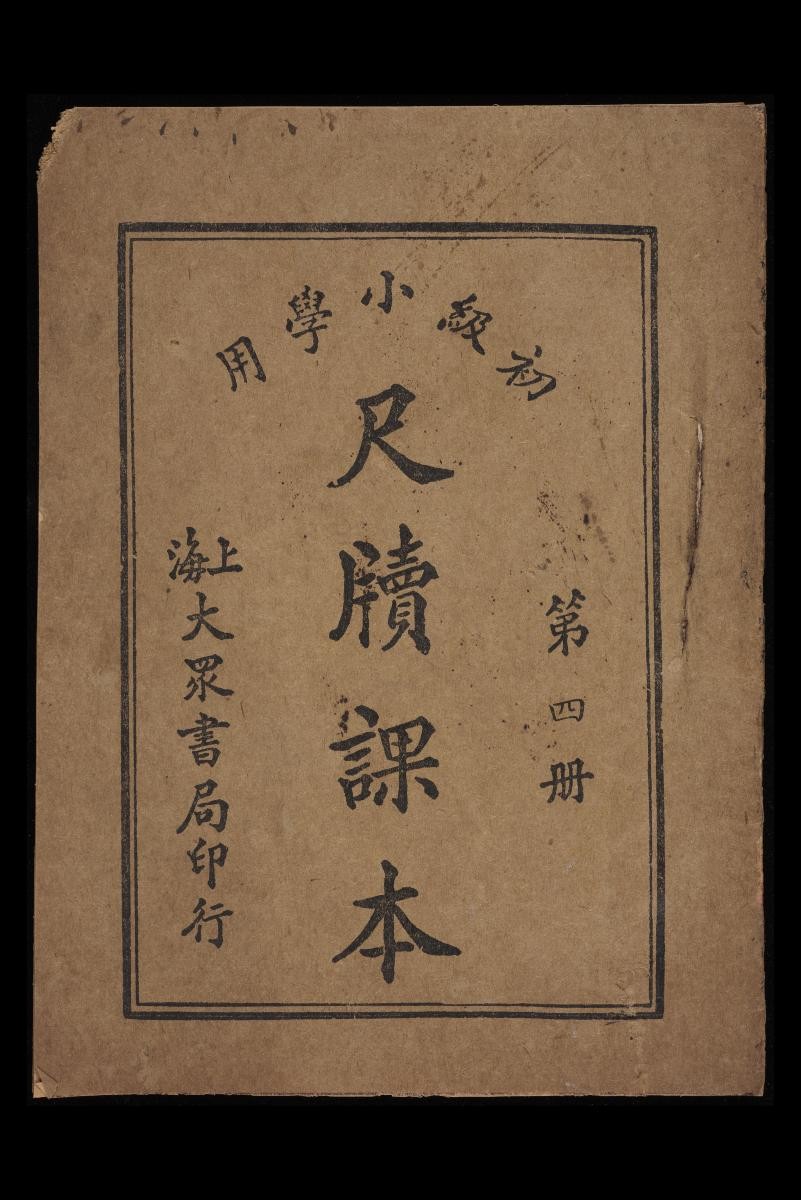 初級小學用
第四册
尺牘課本
上海大眾書局印行